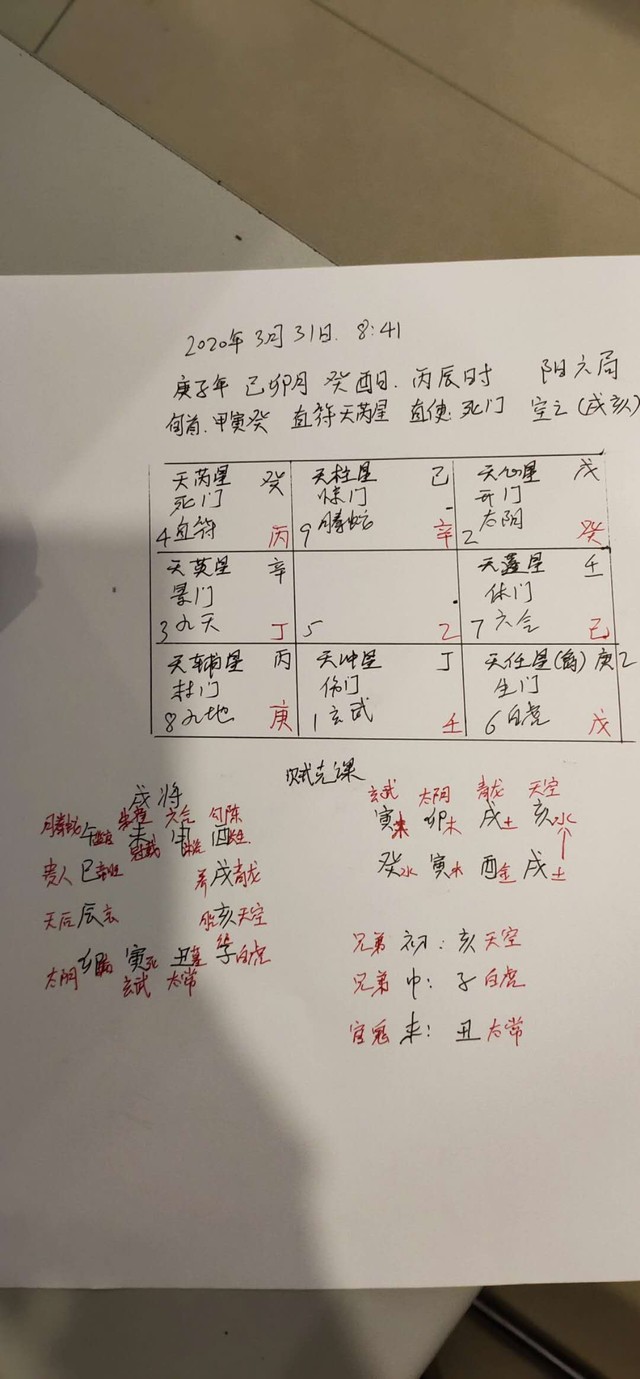 2020年3月31日. 8:41
庚子年 己卯月 癸酉日. 丙辰时 阳六局
旬首.甲寅癸 直符天芮星 直使:死门 空亡(戌亥)
天芮星 癸 天柱星 己 天心星 戊
死门 惊门 开门
4直符 丙 9螣蛇 辛 2太阴 癸
天英星 辛 天蓬星 壬
景门 休门
3九天 丁 5 乙 7六合 己
天辅星 丙 天冲星 丁 天任星(芮)庚乙
杜门 伤门 生门
8九地 庚 1玄武 壬 6白虎 戊
贼克课
戌将
螣蛇 朱雀 六合 勾陈
午 未 申 酉
贵人 巳 养戌青龙
天后 辰 亥天空
太阴 卯 寅死 丑墓 子白虎
玄武 太常
玄武 太阴 青龙 天空
寅木 卯木 戌土 亥水
癸水 寅木 酉金 戌土
兄弟 初: 亥 天空
兄弟 中: 子 白虎
官鬼 末: 丑 太常